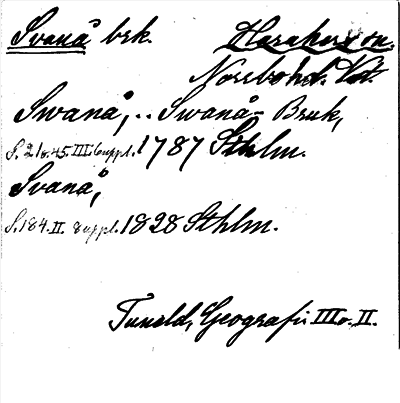 Svanå brk. Haraker sn.
Norrbo hd. Vstm.
Swanå, .. Swanå- Bruk,
S. 21 o. 45. III. 6 uppl. 1787 Sthlm.
Svanå,
S. 184. II. 8 uppl. 1828 Sthlm.
Tuneld, Geografi III o. II.